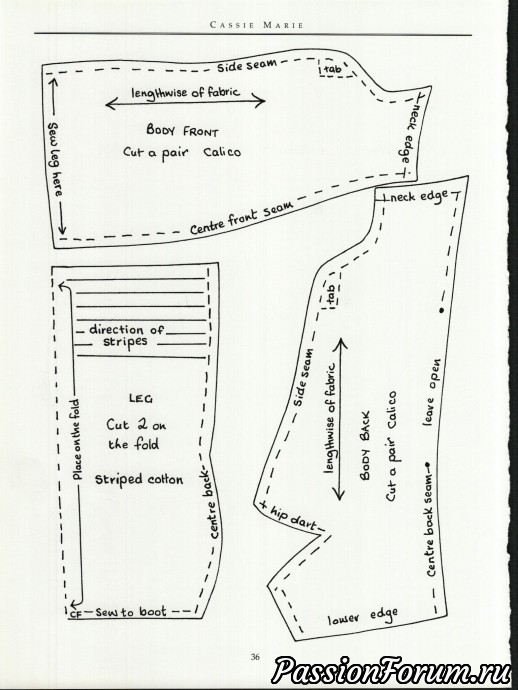 CASSIE MARIE
Side seam
tab
lengthwise of fabric
neck edge
BODY FRONT
Cut a pair Calico
Sew leg here
Centre front seam
neck edge
tab
direction of
stripes
Side seam
lengthwise of fabric
BODY BACK
Cut a pair Calico
leave open
Centre back seam
LEG
Cut 2 on
the fold
Striped cotton
Place on the fold
Centre back
hip dart
CF
Sew to boot
lower edge
36
PassionForum.ru